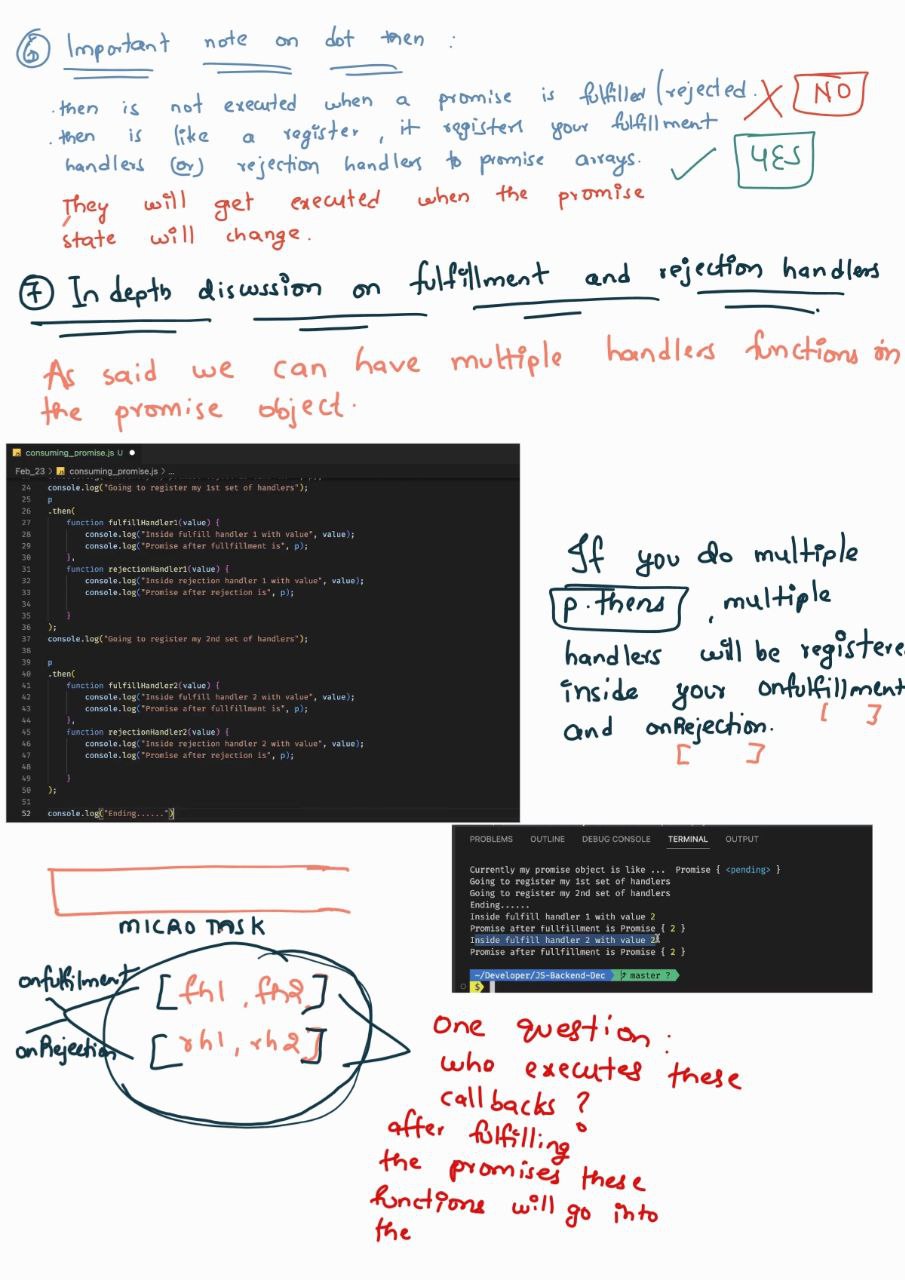 6 Important note on dot then :
.then is not executed when a promise is fulfilled (rejected. X NO
.then is like a register, it registers your fulfillment
handlers (or) rejection handlers to promise arrays. ✓ YES
They will get executed when the promise
state will change.
7 In depth discussion on fulfillment and rejection handlers
As said we can have multiple handlers functions in
the promise object.
consuming_promise.js U ●
Feb_23 > consuming_promise.js > ...
24 console.log("Going to register my 1st set of handlers");
25 p
26 .then(
27 function fulfillHandler1(value) {
28 console.log("Inside fulfill handler 1 with value", value);
29 console.log("Promise after fullfillment is", p);
30 },
31 function rejectionHandler1(value) {
32 console.log("Inside rejection handler 1 with value", value);
33 console.log("Promise after rejection is", p);
34
35 }
36 );
37 console.log("Going to register my 2nd set of handlers");
38
39 p
40 .then(
41 function fulfillHandler2(value) {
42 console.log("Inside fulfill handler 2 with value", value);
43 console.log("Promise after fullfillment is", p);
44 },
45 function rejectionHandler2(value) {
46 console.log("Inside rejection handler 2 with value", value);
47 console.log("Promise after rejection is", p);
48
49 }
50 );
51
52 console.log("Ending......")
If you do multiple
p.thens , multiple
handlers will be registere
inside your onfulfillment
[ ]
and onRejection.
[ ]
PROBLEMS OUTLINE DEBUG CONSOLE TERMINAL OUTPUT
Currently my promise object is like ... Promise { <pending> }
Going to register my 1st set of handlers
Going to register my 2nd set of handlers
Ending......
Inside fulfill handler 1 with value 2
Promise after fullfillment is Promise { 2 }
Inside fulfill handler 2 with value 2
Promise after fullfillment is Promise { 2 }
~/Developer/JS-Backend-Dec master ?
$
MICRO TASK
onfulfilment [fh1, fh2]
onRejection [rh1, rh2]
One question :
who executes these
callbacks ?
after fulfilling
the promises these
functions will go into
the